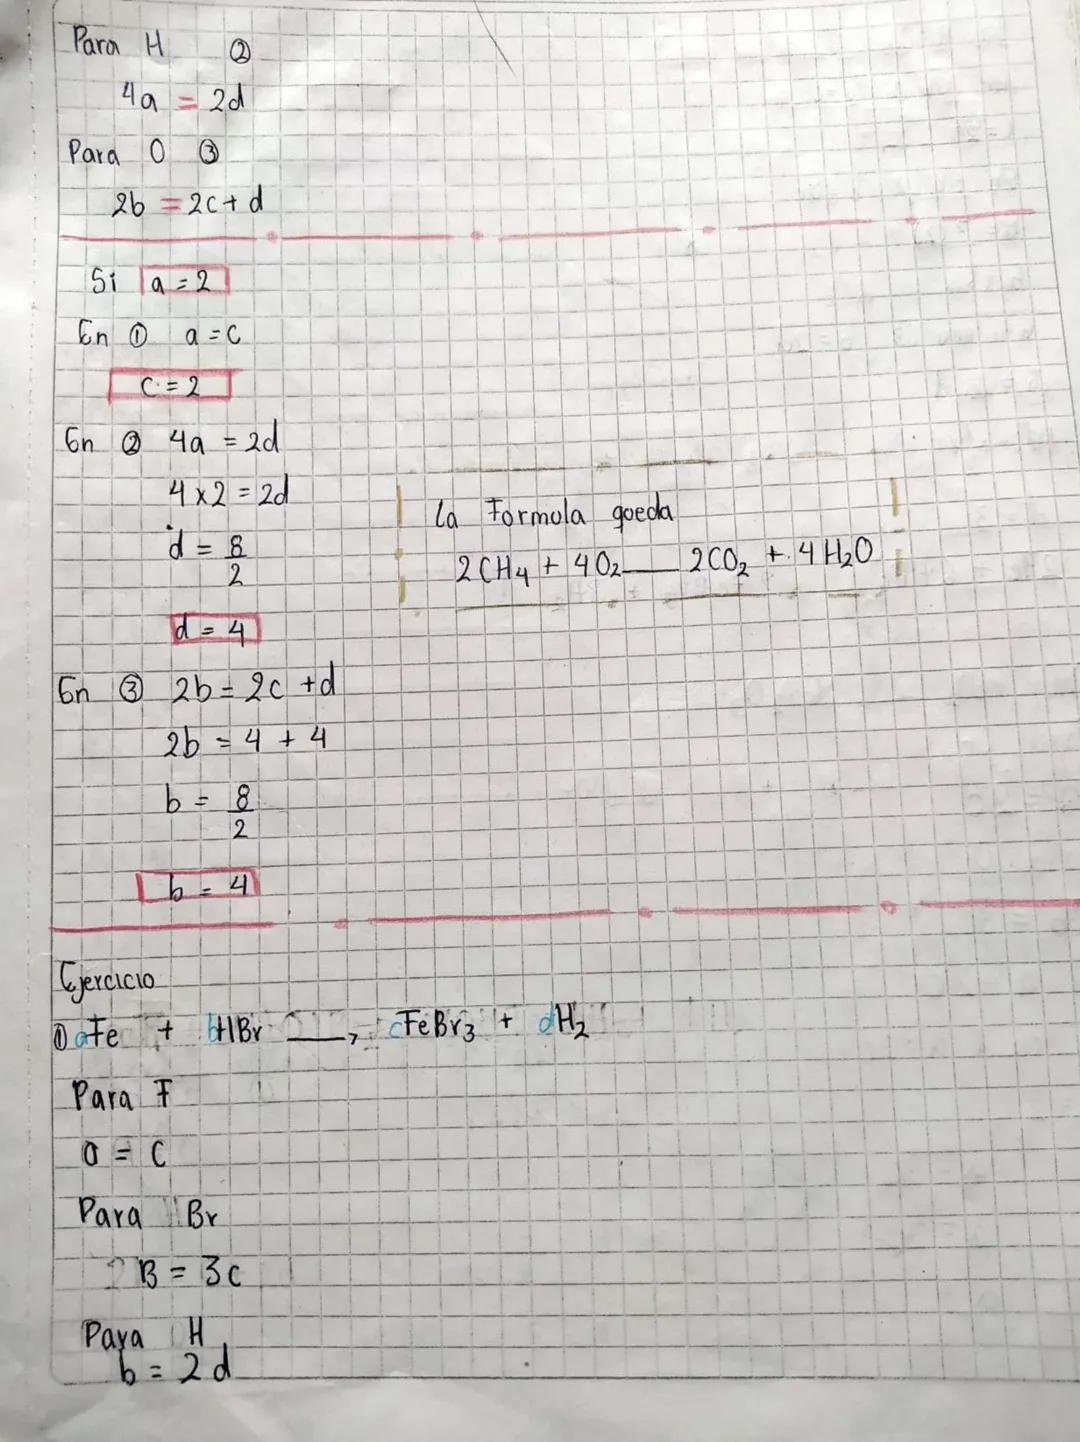 Para H ②
4a = 2d
Para O ③
2b = 2c + d
Si a = 2
En ① a = c
c = 2
En ② 4a = 2d
4 x 2 = 2d
d = 8/2
d = 4
La Formula queda
2CH₄ + 4O₂ — 2CO₂ + 4H₂O
En ③ 2b = 2c + d
2b = 4 + 4
b = 8/2
b = 4
Ejercicio
① aFe + bHBr → cFeBr₃ + dH₂
Para F
a = c
Para Br
B = 3c
Para H
b = 2d